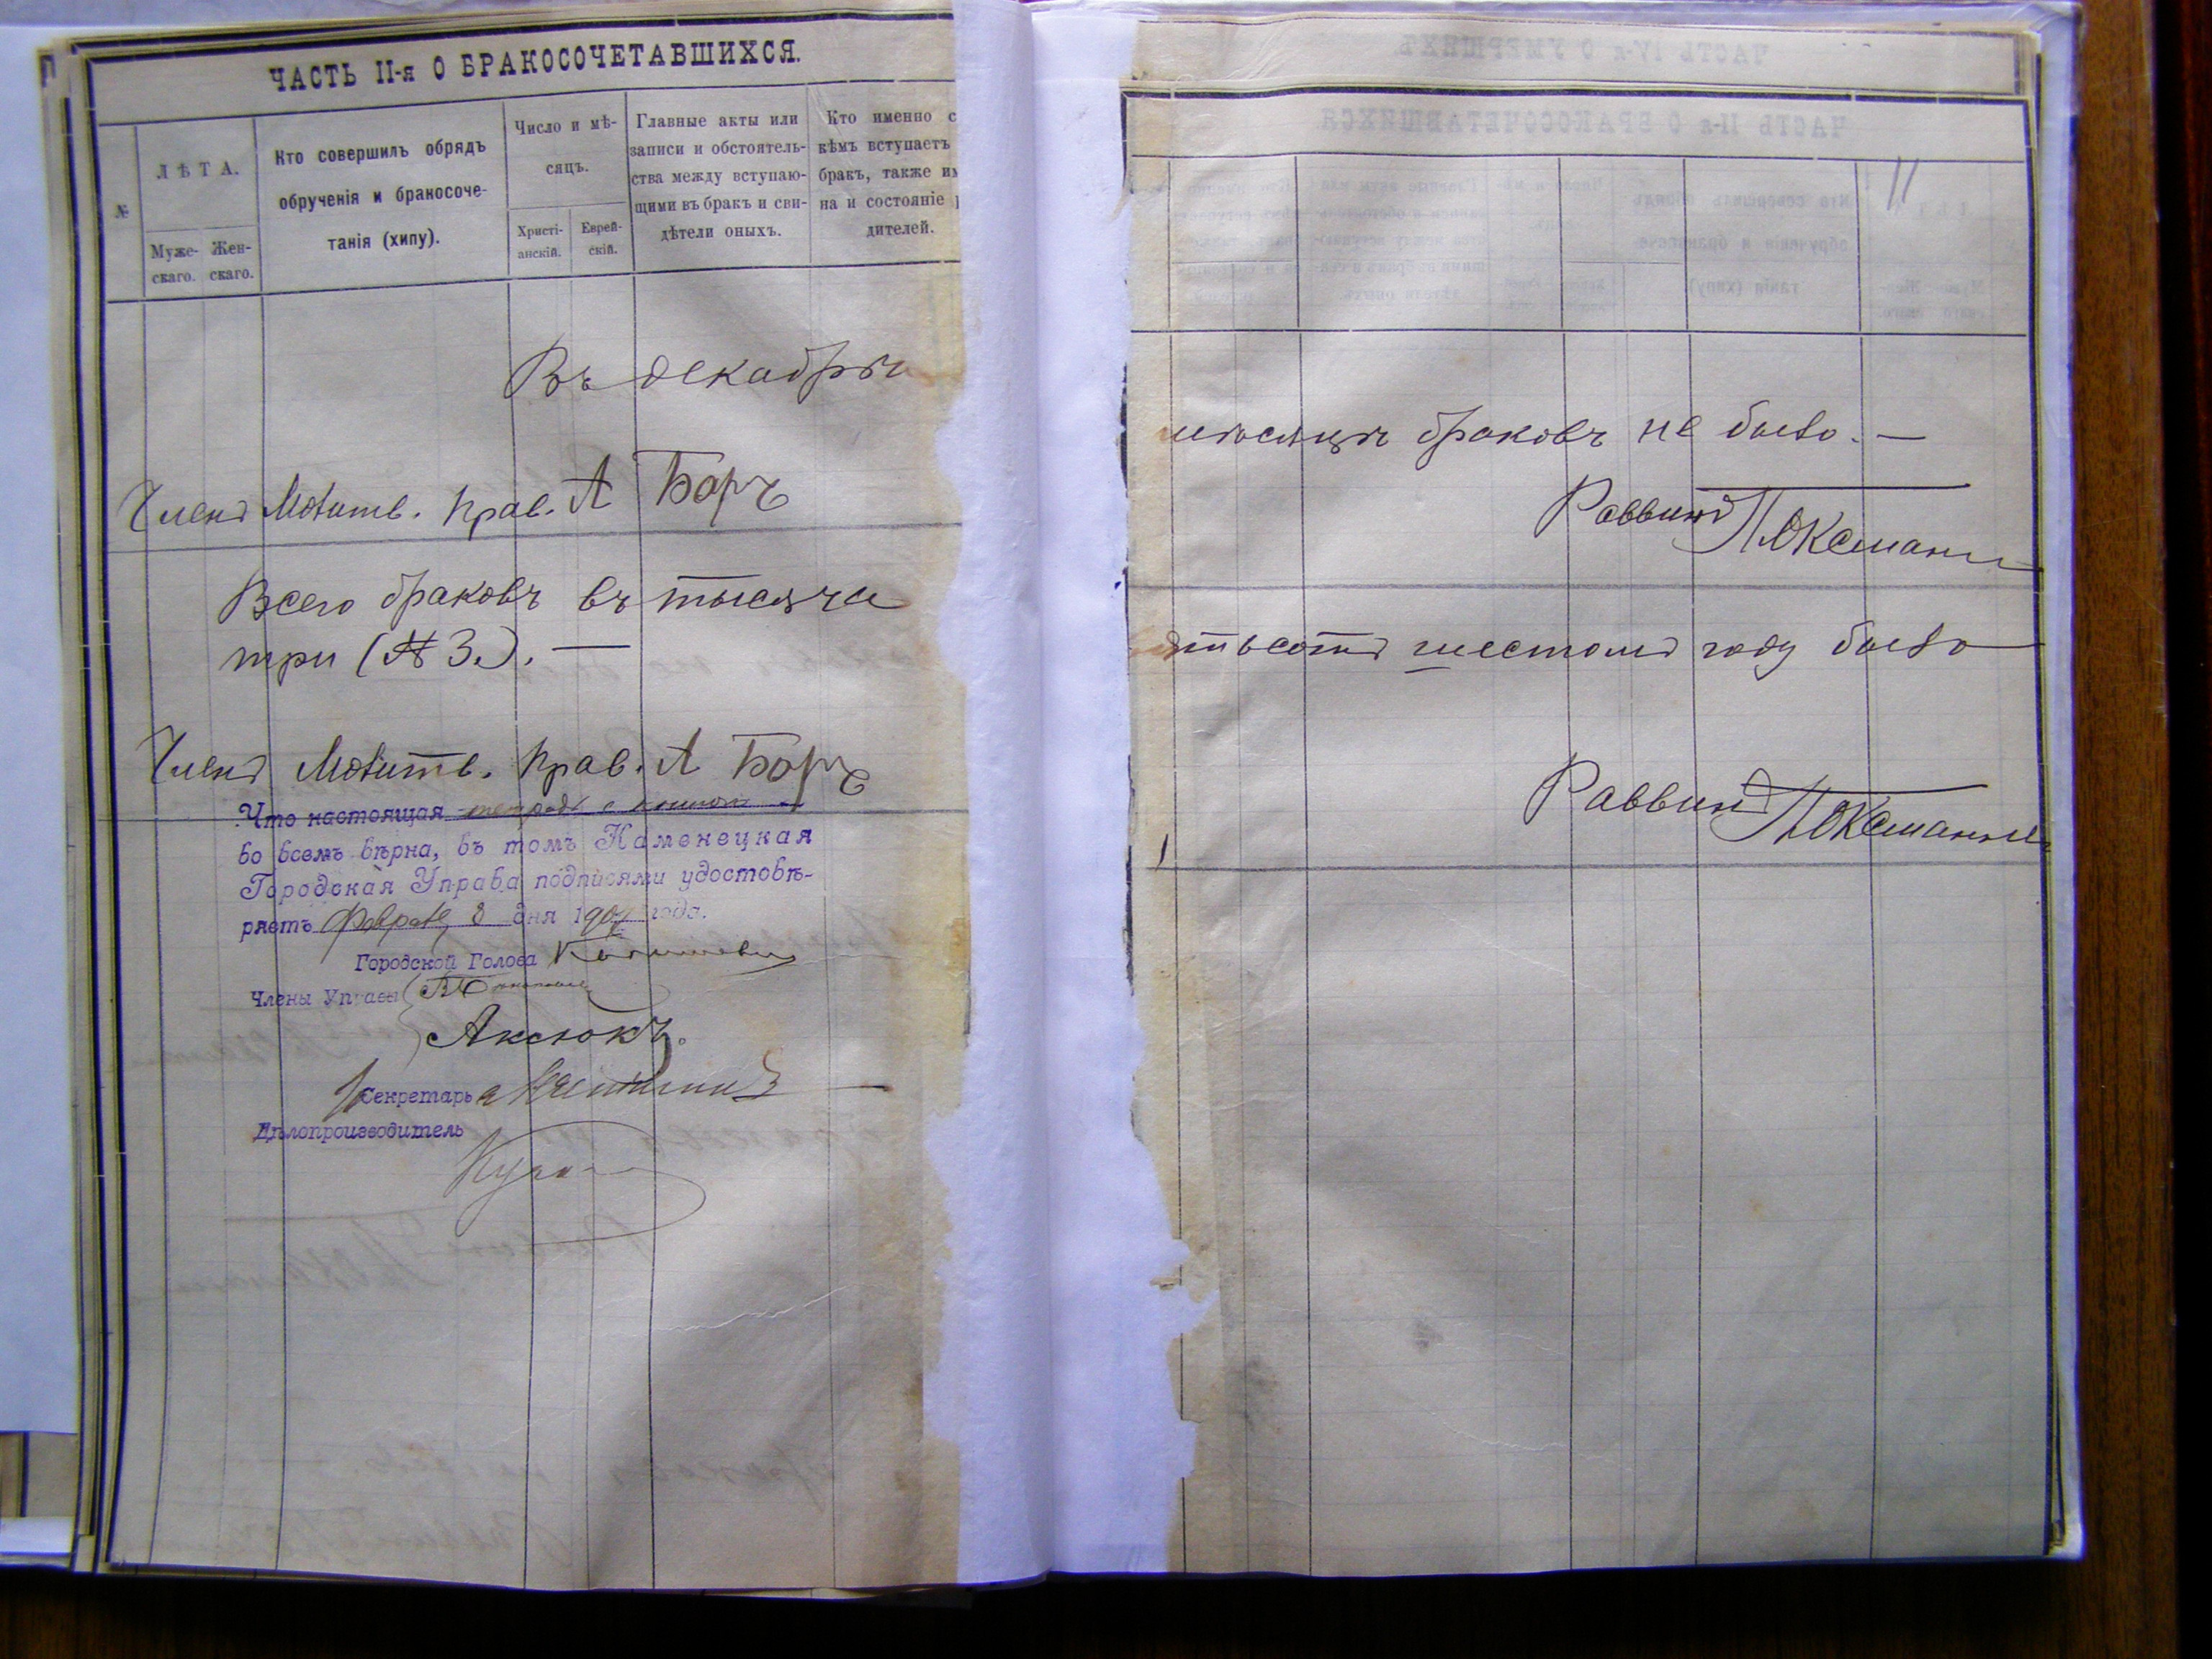 ЧАСТЬ II-я О БРАКОСОЧЕТАВШИХСЯ.
№
ЛѢТА.
Муже-
скаго.
Жен-
скаго.
Кто совершилъ обрядъ
обрученія и бракосоче-
танія (хипу).
Число и мѣ-
сяцъ.
Христі-
анскій.
Еврей-
скій.
Главные акты или
записи и обстоятель-
ства между вступаю-
щими въ бракъ и сви-
дѣтели оныхъ.
Кто именно с
кѣмъ вступаетъ
бракъ, также им
на и состояніе р
дителей.
Въ декабрѣ
Членъ Молитв. Прав. А Боръ
Всего браковъ въ тысяча
три (№ 3.). —
Членъ Молитв. Прав. А Боръ
Что настоящая тетрадь с
во всемъ вѣрна, въ томъ Каменецкая
Городская Управа подписями удостовѣ-
ряетъ Февраля 8 дня 1907 года.
Городской Голова
Члены Управы
Аксюкъ.
Секретарь
Дѣлопроизводитель
11
мѣсяцѣ браковъ не было. —
Раввинъ
ятьсотъ шестомъ году было
Раввинъ